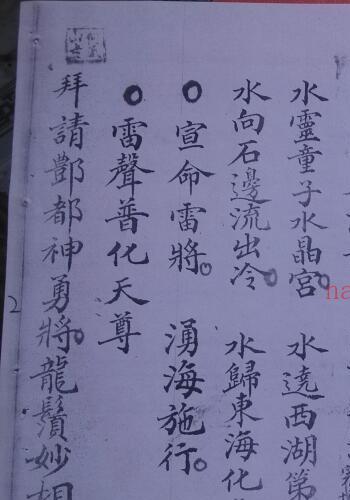 水靈童子水晶宮。水遶西湖第
水向石邊流出冷。水歸東海化
○宣命雷將。湧海施行。
○雷聲普化天尊
拜請酆都神勇將。龍鬚妙
2